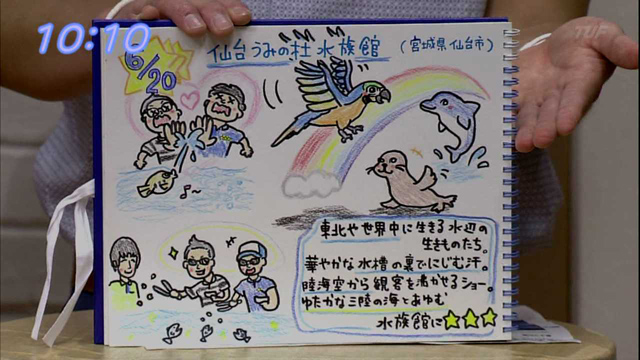 10:10
TUF
仙台うみの杜水族館 (宮城県仙台市)
6/20
♪～
東北や世界中に生きる水辺の
生きものたち。
華やかな水槽の裏でにじむ汗。
陸海空から観客を沸かせるショー。
ゆたかな三陸の海とあゆむ
水族館に★★★